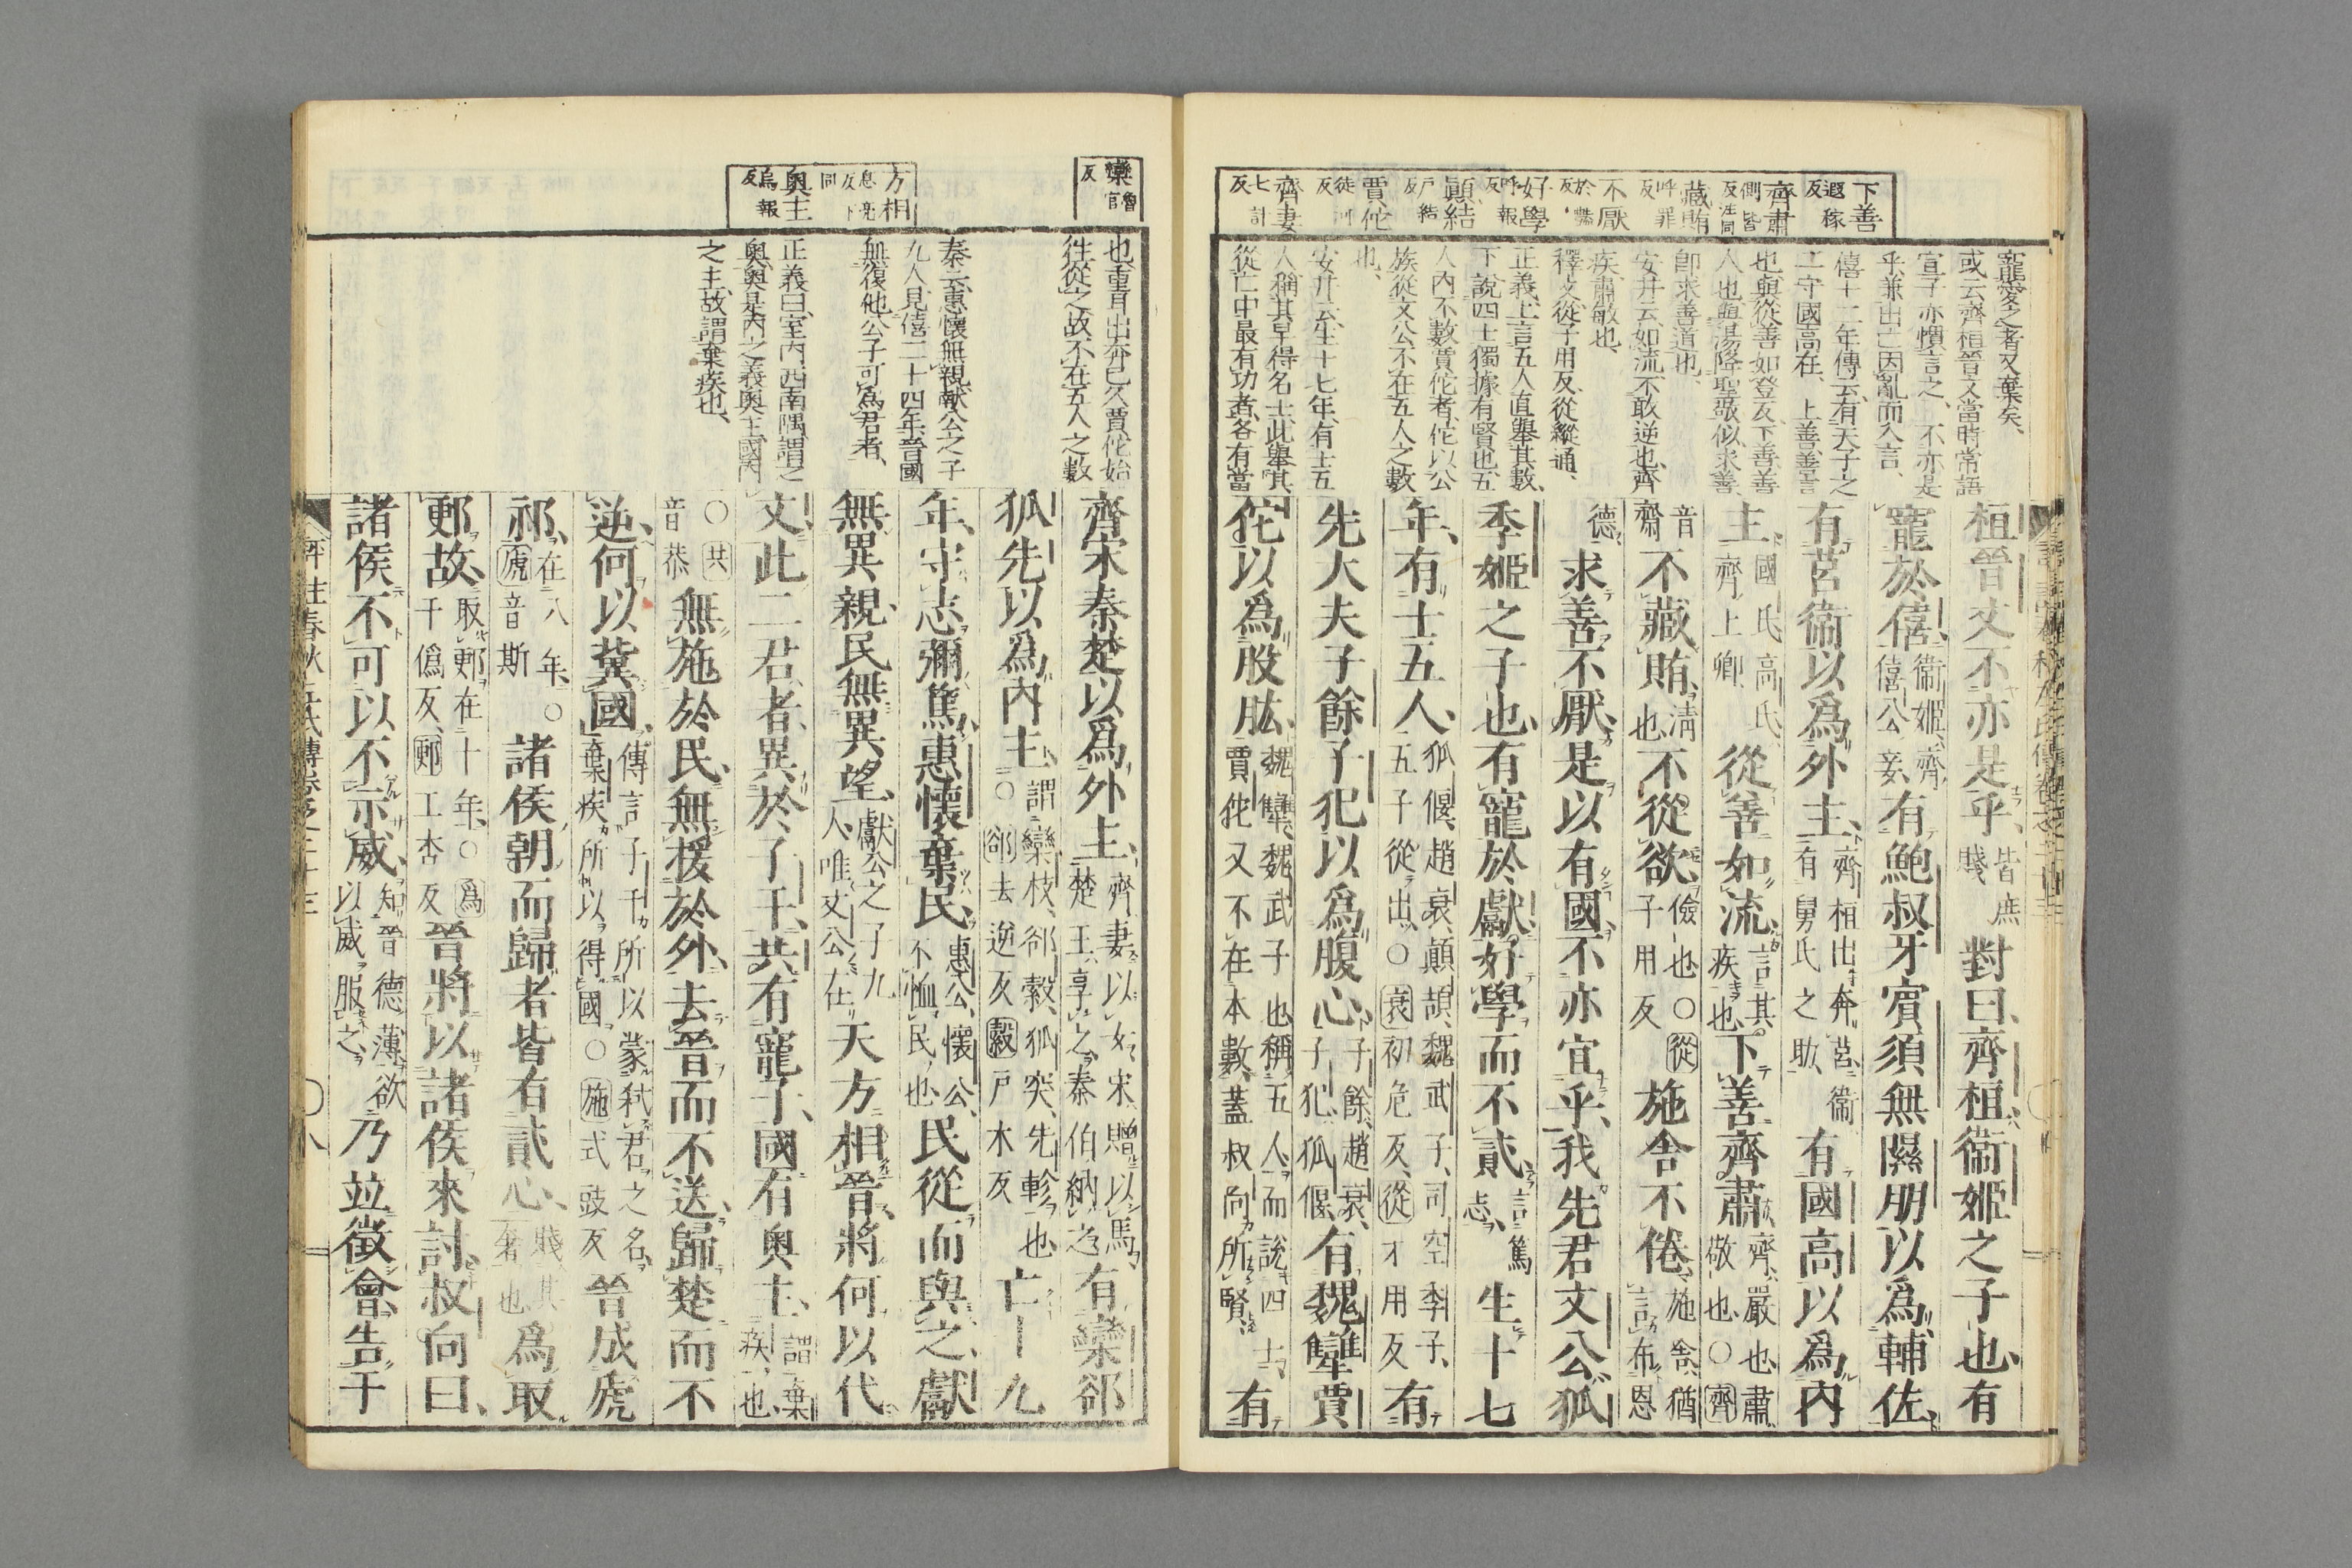 下善
遐稼
反
齊肅
側皆
反注同
藏賄
呼罪
反
不厭
於豔
反
好學
呼報
反
顚結
戸結
反
賈佗
徒河
反
齊妻
七計
反
寵愛之者又棄矣、
或云齊桓晉文當時常語
宣子亦慣言之、不亦是
乎兼出亡因亂而入言、
僖十二年傳云有天子之
二守國高在、上善善言
也與從善如登反下善善
人也與湯降聖敬似求善
卽求善道也、
安井云如流不敢逆也齊
疾肅敏也、
釋文從子用反從縱通、
正義上言五人直舉其數、
下說四士獨據有賢也五
人內不數賈佗者佗以公
族從文公不在五人之數
也、
安井云生十七年有士五
人稱其早得名士此舉其
從亡中最有功者各有當
桓晉文不亦是乎、皆庶賤對曰、齊桓、衞姬之子也、有
寵於僖、衞姬、齊僖公妾、有鮑叔牙賓須無隰朋以爲輔佐、
有莒衞以爲外主、齊桓出奔莒、衞有舅氏之助、有國高以爲內
主、國氏高氏、齊上卿從善如流、言其疾也、下善齊肅、齊、嚴也肅敬也○齊
音齋不藏賄、淸也不從欲、儉也○從子用反施舍不倦、施舍、猶言布恩
德、求善不厭、是以有國、不亦宜乎、我先君文公、狐
季姬之子也、有寵於獻、好學而不貳、言篤志、生十七
年、有士五人、狐偃、趙衰、顚頡、魏武子、司空季子、五子從出、○衰初危反、從才用反有
先大夫子餘子犯以爲腹心、子餘、趙衰、子犯、狐偃、有魏犨賈
佗以爲股肱、魏犨、魏武子也稱五人、而說四士、賈佗又不在本數、蓋叔向所賢、有
欒
魯官
反
方相
息亮
反下
同
奧主
烏報
反
也重耳出奔已久賈佗始
往從之故不在五人之數
秦云惠懷無親獻公之子
九人見僖二十四年晉國
無復他公子可爲君者、
正義曰室內西南隅謂之
奧奧是內之義奧主國內
之主故謂棄疾也、
齊宋秦楚以爲外主、齊妻以女、宋贈以馬、楚王享之、秦伯納之有欒郤
狐先以爲內主、謂欒枝、郤縠、狐突、先軫也○郤去逆反縠戸木反亡十九
年、守志彌篤、惠懷棄民、惠公、懷公、不恤民也、民從而與之、獻
無異親、民無異望、獻公之子九人、唯文公在天方相晉、將何以代
文、此二君者、異於子干、共有寵子、國有奧主、謂棄疾也、
○共音恭無施於民、無援於外、去晉而不送、歸楚而不
逆、何以冀國、傳言子干所以蒙弒君之名、棄疾所以得國、○施式豉反晉成虒
祁、在八年、○虒音斯諸侯朝而歸者、皆有貳心、賤其奢也爲取
郠故、取郠在十年、○爲于僞反、郠工杏反晉將以諸侯來討、叔向曰、
諸侯不可以不示威、知晉德薄、欲以威服之、乃並徵會、告于
評註春秋左氏傳卷之二十三
○八